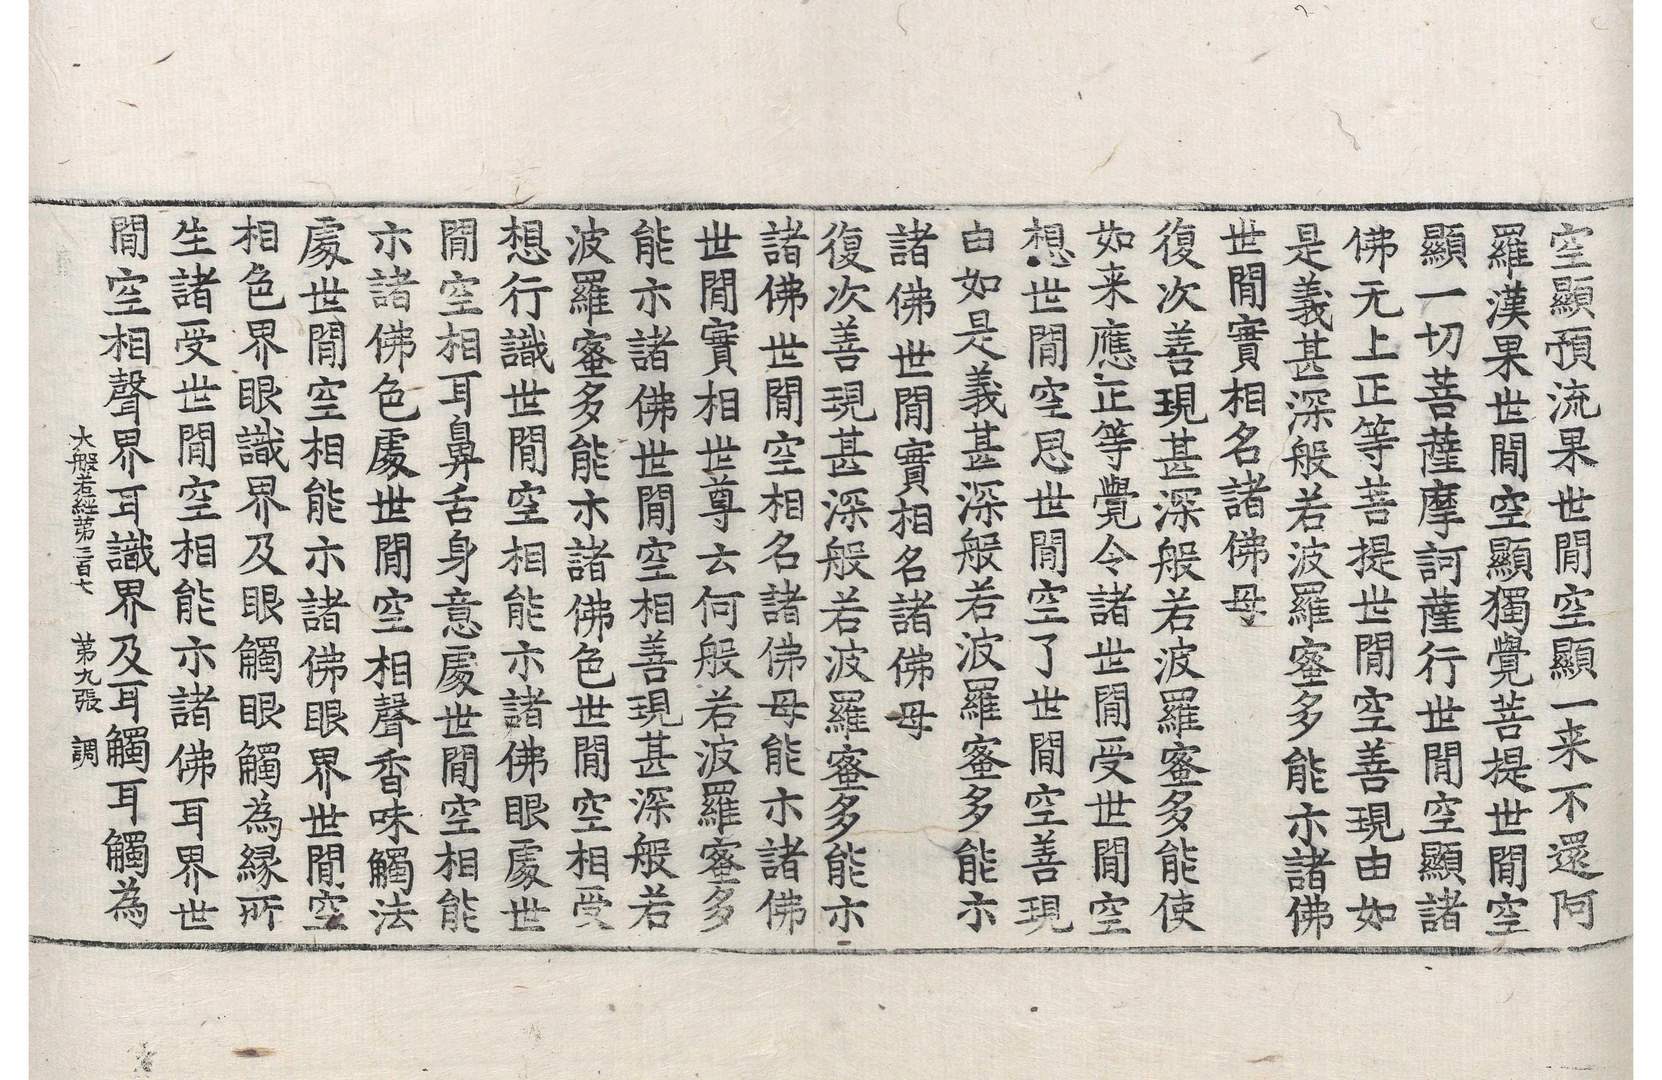 空顯預流果世間空顯一来不還阿
羅漢果世間空顯獨覺菩提世間空
顯一切菩薩摩訶薩行世間空顯諸
佛无上正等菩提世間空善現由如
是義甚深般若波羅蜜多能示諸佛
世間實相名諸佛母
復次善現甚深般若波羅蜜多能使
如来應正等覺令諸世間受世間空
想世間空思世間空了世間空善現
由如是義甚深般若波羅蜜多能示
諸佛世間實相名諸佛母
復次善現甚深般若波羅蜜多能示
諸佛世間空相名諸佛母能示諸佛
世間實相世尊云何般若波羅蜜多
能示諸佛世間空相善現甚深般若
波羅蜜多能示諸佛色世間空相受
想行識世間空相能示諸佛眼處世
間空相耳鼻舌身意處世間空相能
示諸佛色處世間空相聲香味觸法
處世間空相能示諸佛眼界世間空
相色界眼識界及眼觸眼觸為緣所
生諸受世間空相能示諸佛耳界世
間空相聲界耳識界及耳觸耳觸為
大般若經第三百七 第九張 調